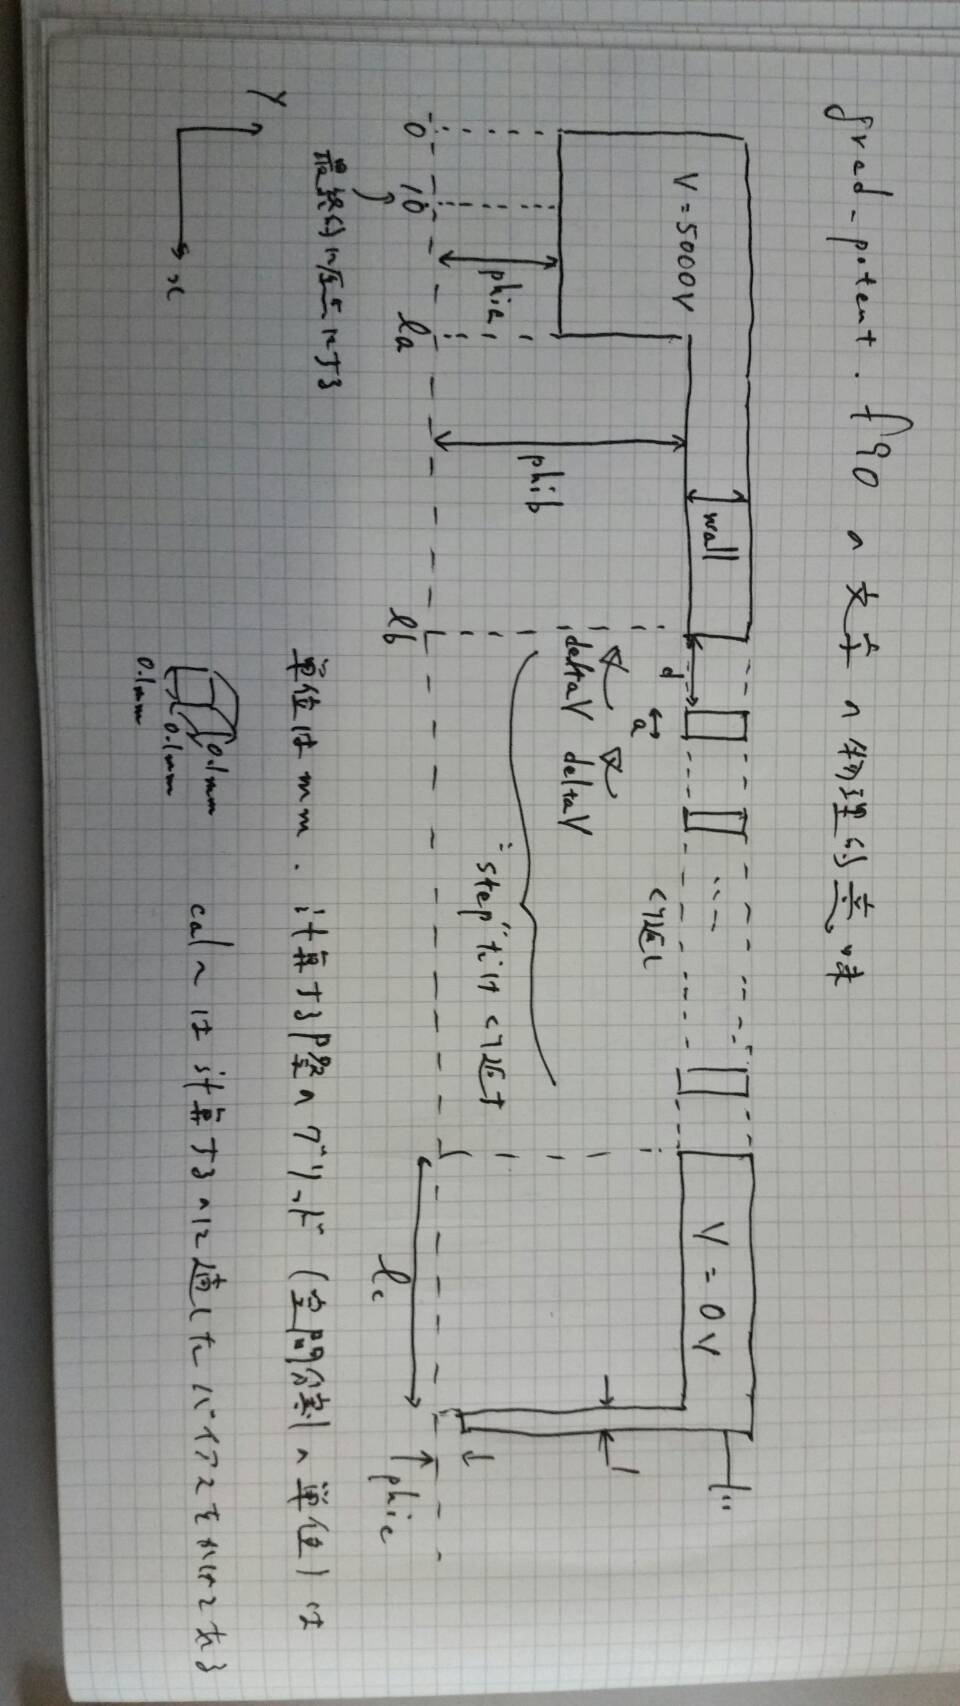 grad_potent.f90 の文字の物理的意味
V=5000V
wall
V=0V
d
a
くり返し
deltaV deltaV
1
phib
phia
"step"だけくり返す
0 10 la lb lc phic
最終的に原点にする
単位はmm. 計算する際のグリッド(空間分割の単位)は
y
x
0.1mm
0.1mm
0.1mm
cal~は計算するのに適したバイアスをかけてある